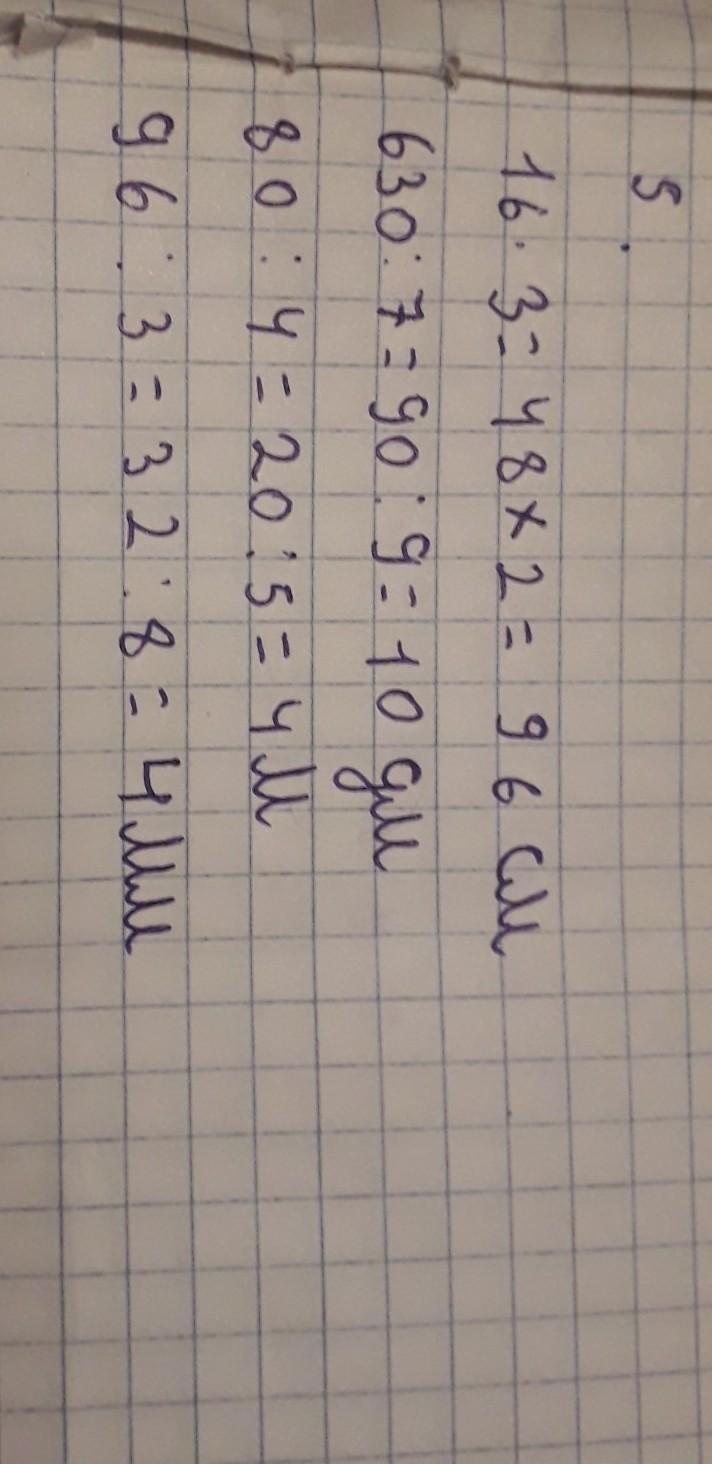 5.
16·3=48×2=96 см
630:7=90:9=10 дм
80:4=20:5=4 м
96:3=32:8=4 мм